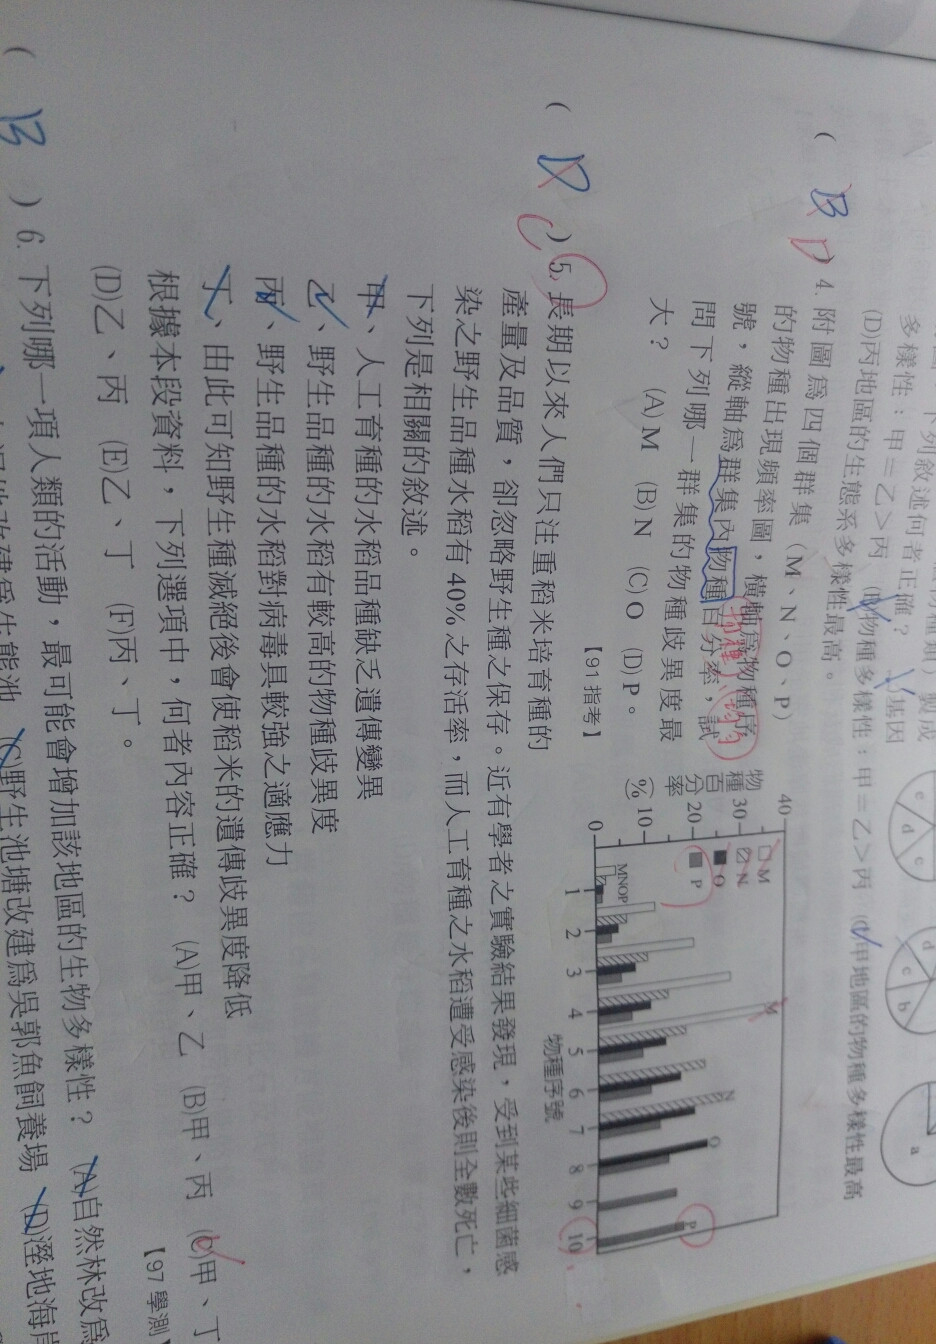 多樣性：甲＝乙＞丙 (B)物種多樣性：甲＝乙＞丙 (C)甲地區的物種多樣性最高
(D)丙地區的生態系多樣性最高。
( B D ) 4. 附圖為四個群集（M、N、O、P）
的物種出現頻率圖，橫軸為物種序
號，縱軸為群集內物種百分率，試
問下列哪一群集的物種歧異度最
大？ (A) M (B) N (C) O (D) P。
【91 指考】
物種百分率
%
40
30
20
10
0
M
N
O
P
MNOP
M
N
O
P
1 2 3 4 5 6 7 8 9 10
物種序號
( D C ) 5. 長期以來人們只注重稻米培育種的
產量及品質，卻忽略野生種之保存。近有學者之實驗結果發現，受到某些細菌感
染之野生品種水稻有 40% 之存活率，而人工育種之水稻遭受感染後則全數死亡，
下列是相關的敘述。
甲、人工育種的水稻品種缺乏遺傳變異
乙、野生品種的水稻有較高的物種歧異度
丙、野生品種的水稻對病毒具較強之適應力
丁、由此可知野生種滅絕後會使稻米的遺傳歧異度降低
根據本段資料，下列選項中，何者內容正確？ (A)甲、乙 (B)甲、丙 (C)甲、丁
(D)乙、丙 (E)乙、丁 (F)丙、丁。
【97 學測】
( B ) 6. 下列哪一項人類的活動，最可能會增加該地區的生物多樣性？ (A)自然林改為
生態池 (C)野生池塘改建為吳郭魚飼養場 (D)溼地海岸